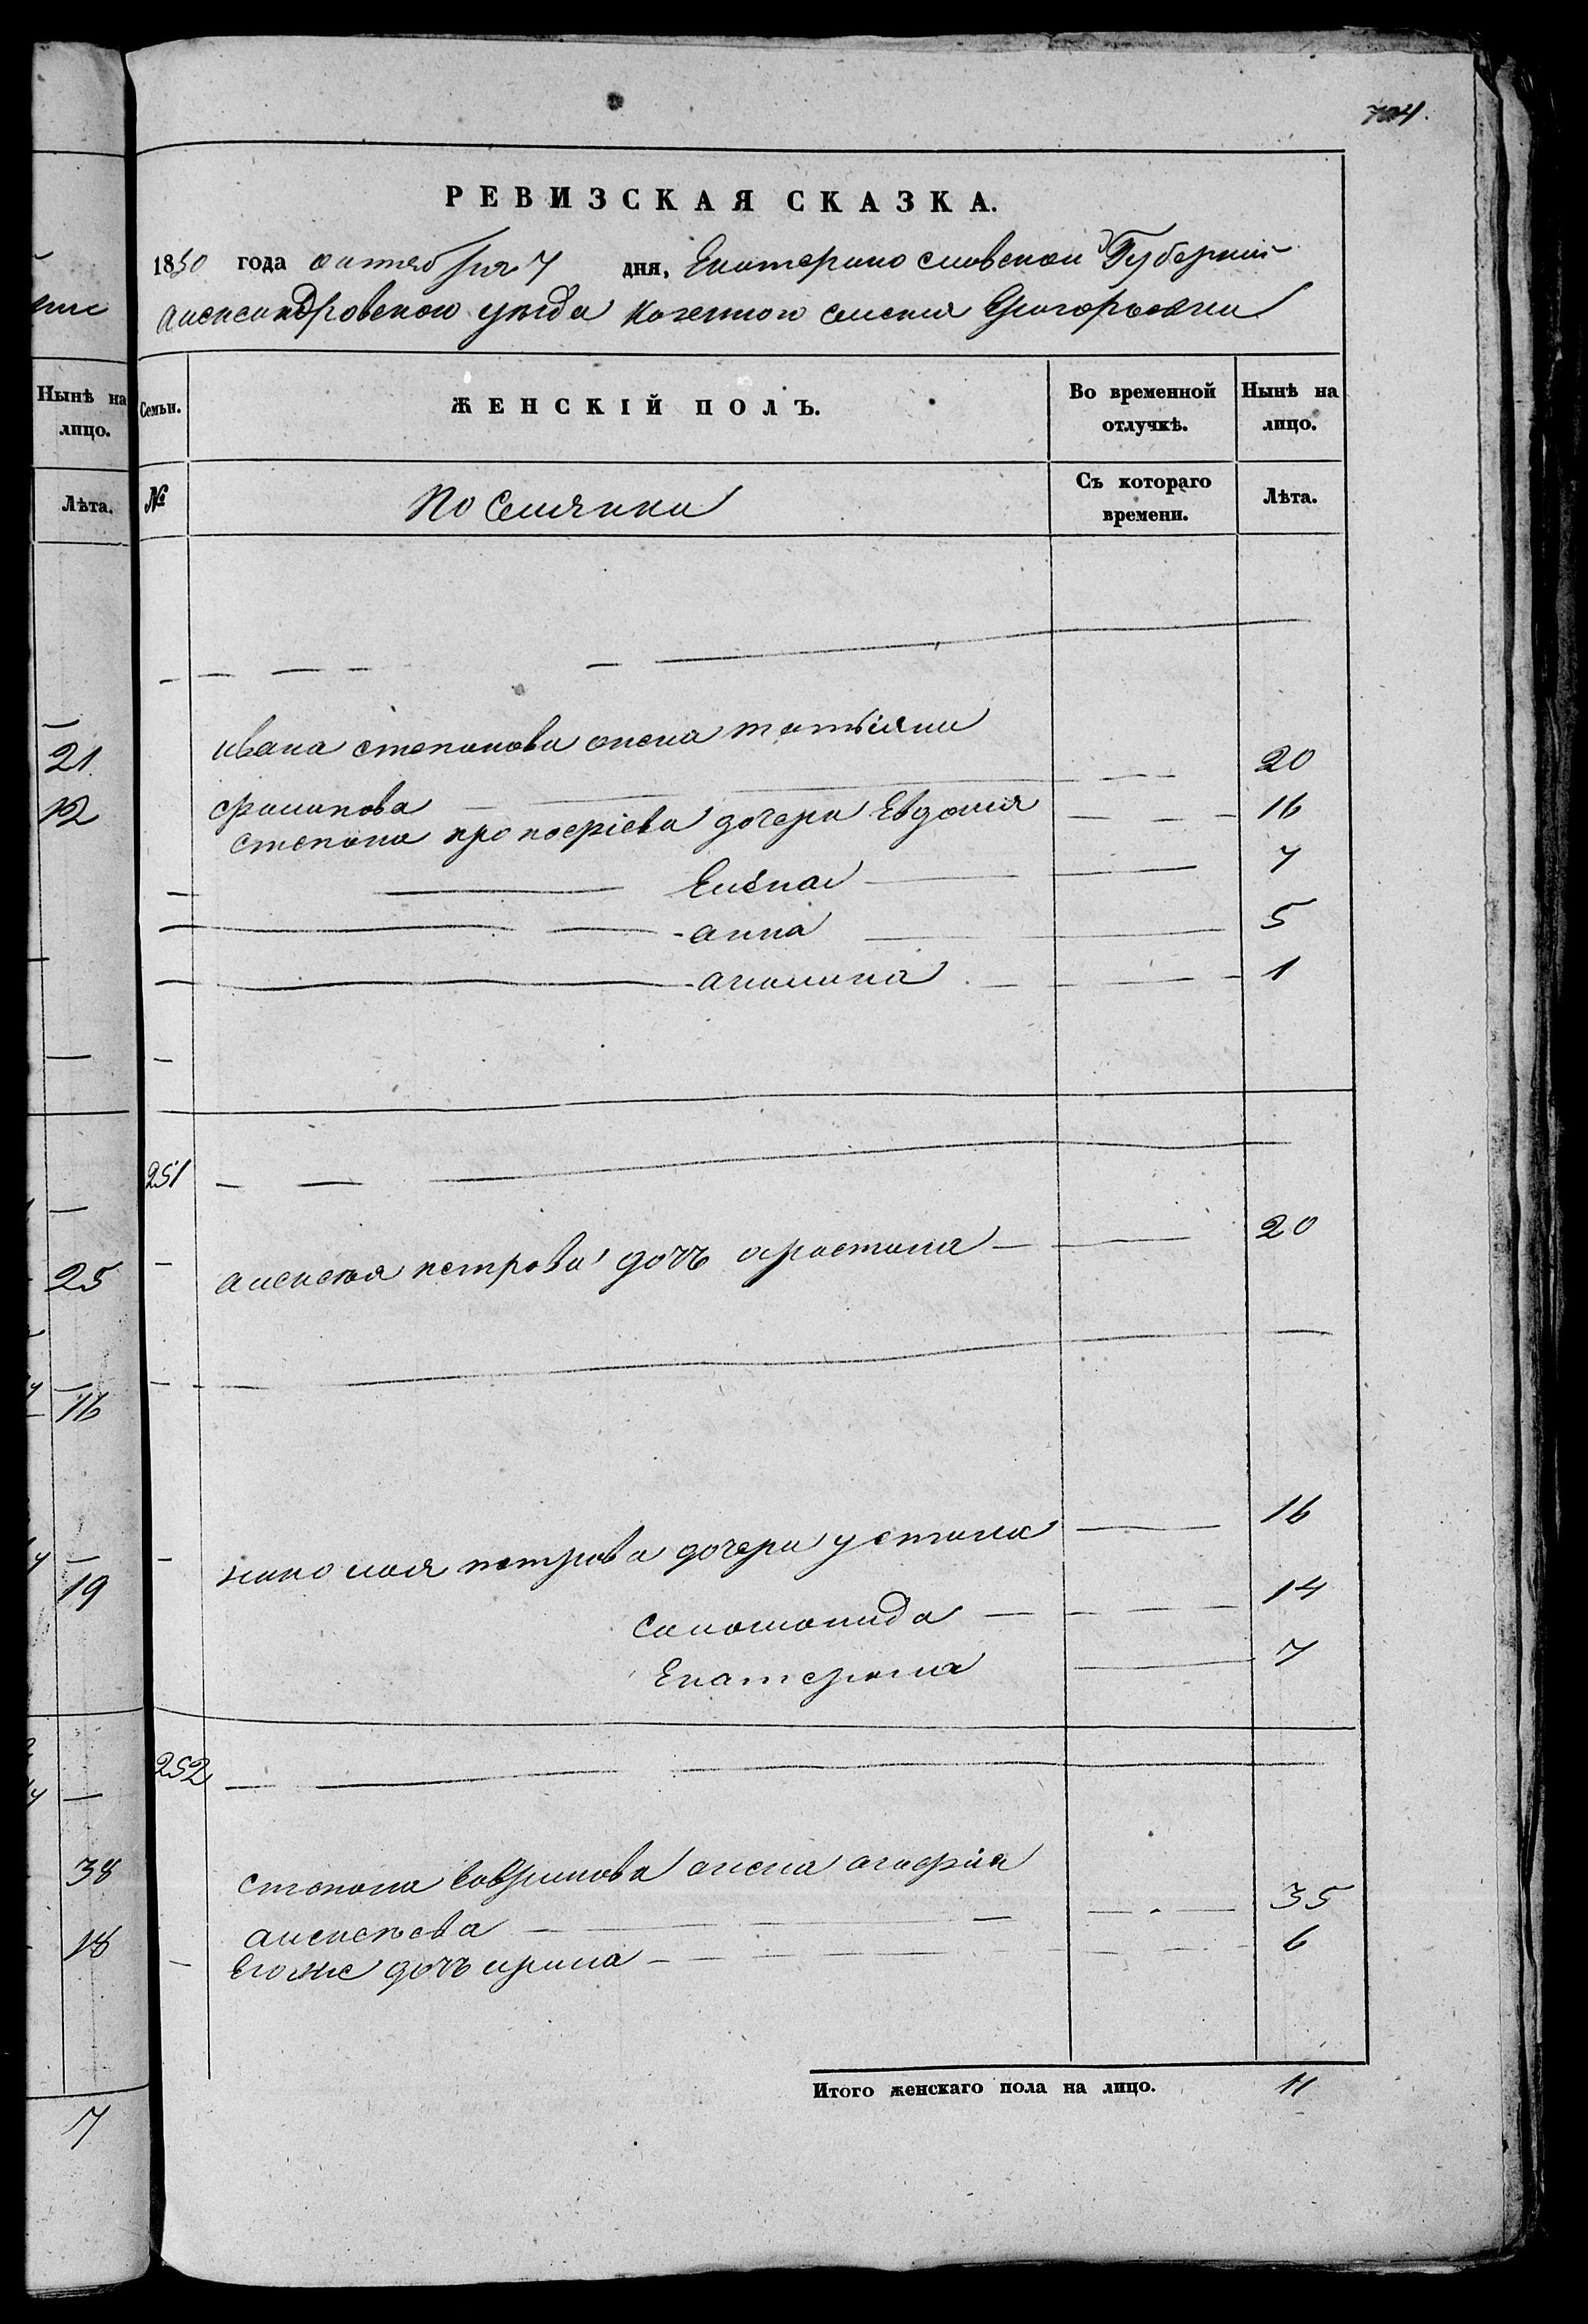 704.
РЕВИЗСКАЯ СКАЗКА.
1850 года октября 7 дня, Екатеринославской Губернии
Александровского уезда казенного селения Григорьевки
ЖЕНСКІЙ ПОЛЪ.
Семьи.
Во временной отлучкѣ.
Нынѣ на лицо.
№
Поселянки
Съ котораго времени.
Лѣта.
Ивана степанова жена татьiяна
филипова — 20
степана прокофіева дочери Евдокия — 16
Елена — 7
анна — 5
акилина — 1
251
алексея петрова дочь христина — 20
николая петрова дочери устина — 16
саломонида — 14
Екатерина — 7
252
степана гаврилова жена агафия
алексеева — 35
Его же дочь ирина — 6
Итого женскаго пола на лицо. 11
Нынѣ на лицо.
Лѣта.
21.
12
25
16
19
38
18
7